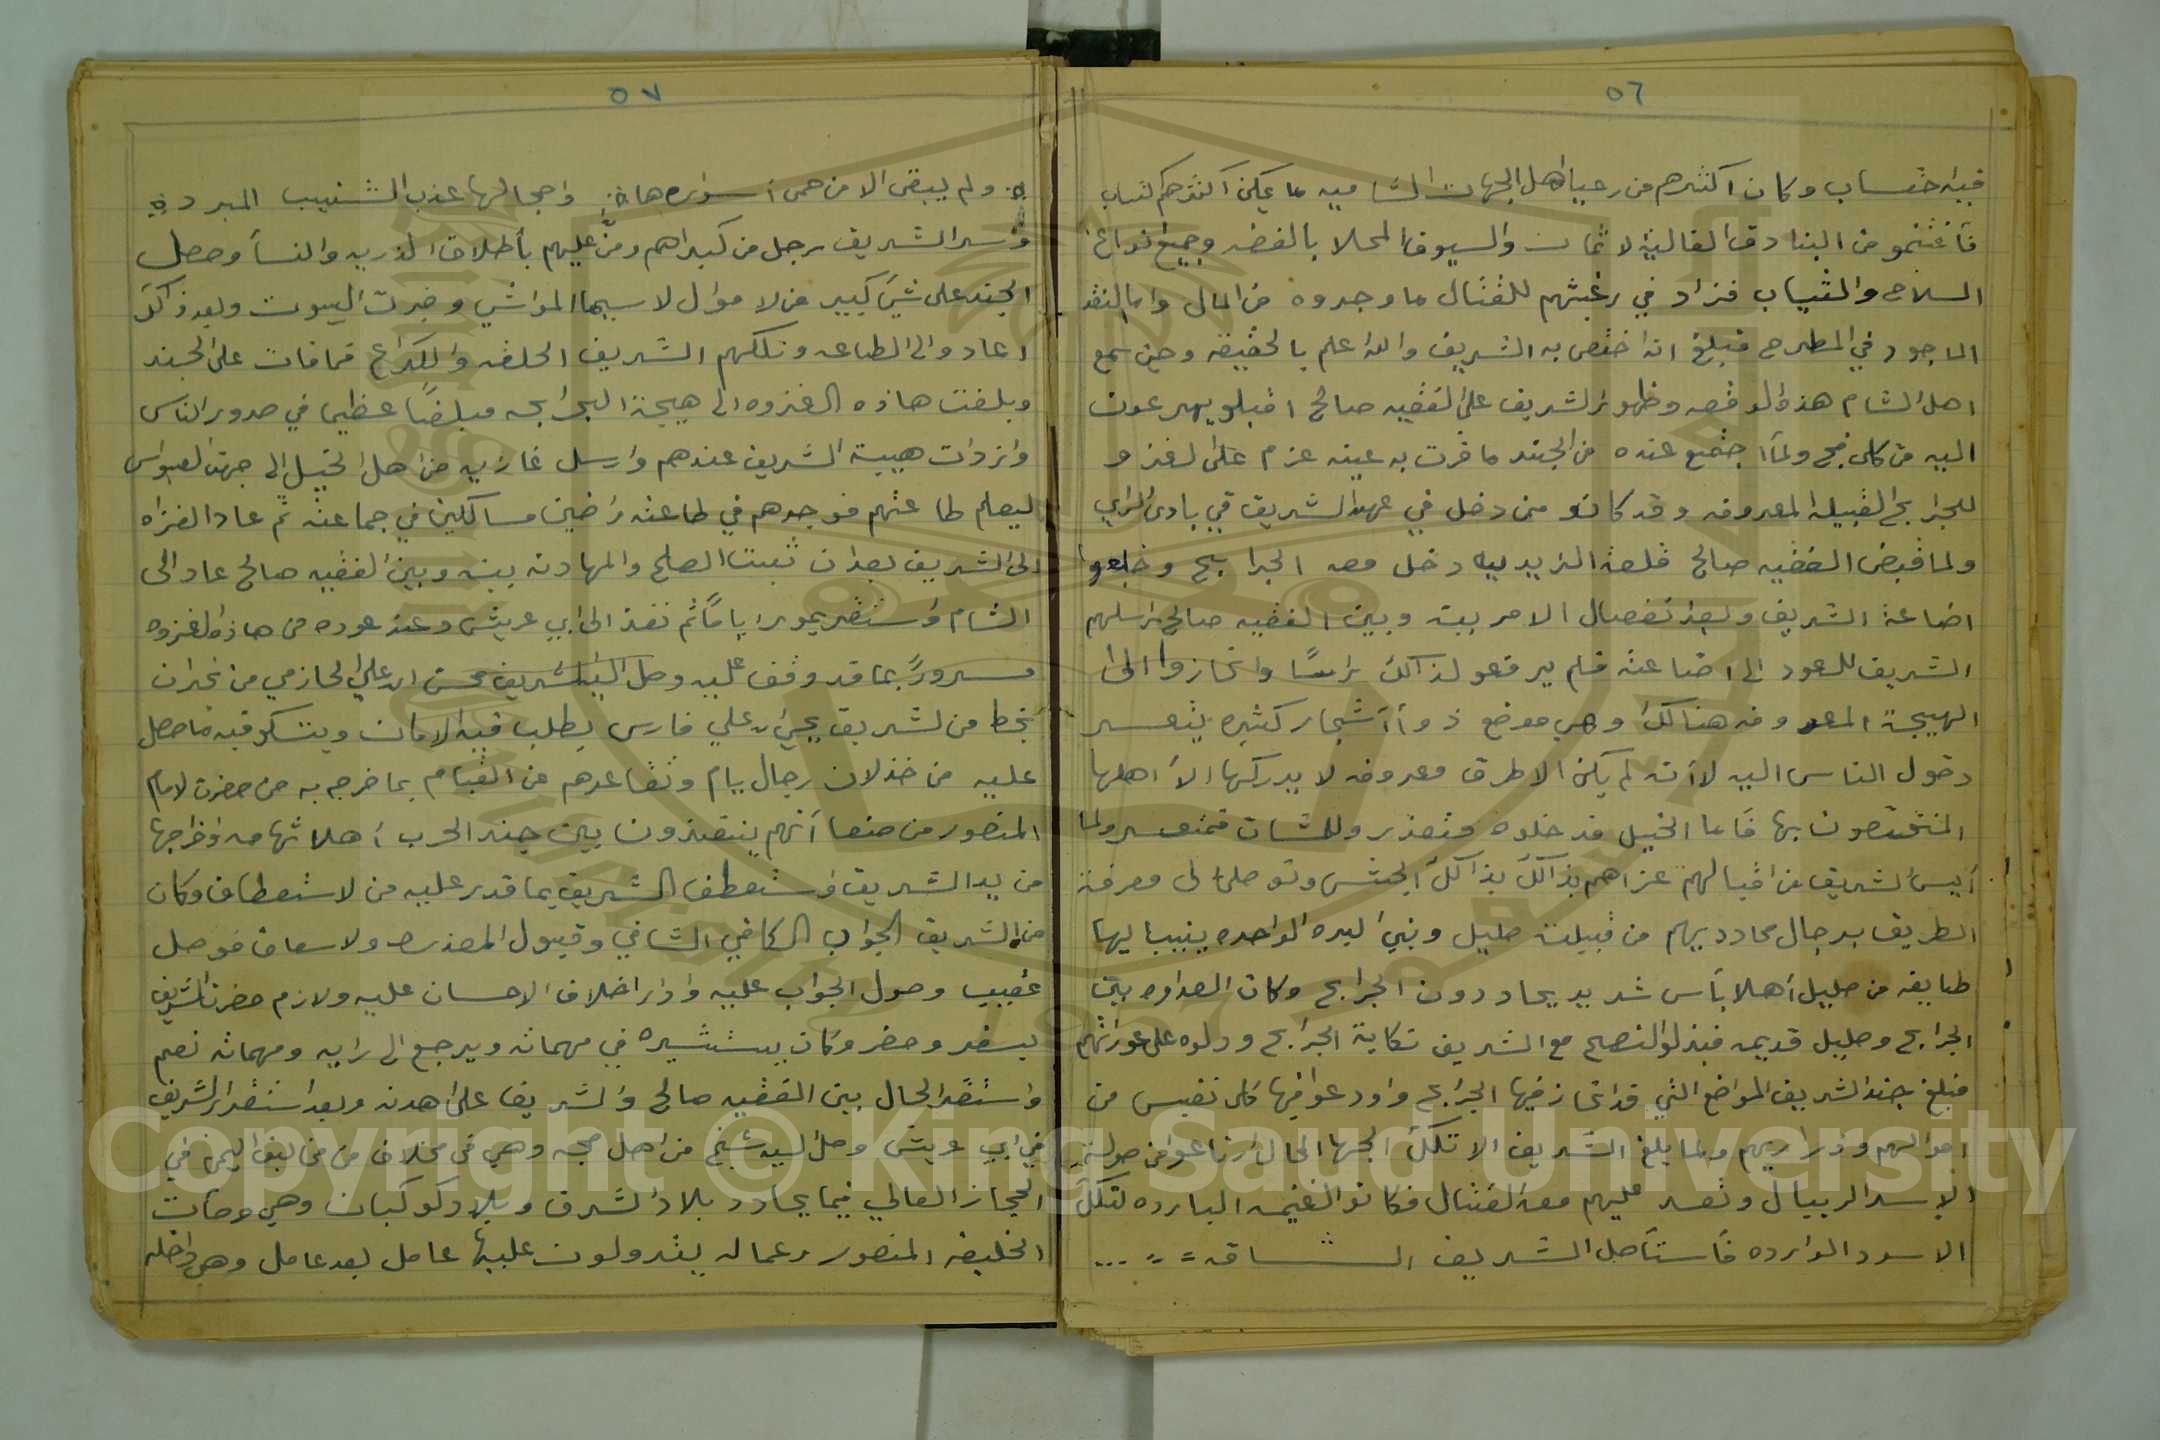 ٥٦
فيه حساب وكان آكثرهم من رعيا اهل الجهات الشاميه ما يمكن اكثرهم كتساب
فأغتنمو من البنادق الغالية لاثمان والسيوف المحلا بالفضه وجميع انواع
السلاح والثياب فزاد في رغبتهم للقتال ما وجدوه من المال واما النقد
الماجود في المطرح فبلغ انه اختص به الشريف والله اعلم بالحقيقه وحين سمع
اهل الشام هذه الوقعه وظهور الشريف على الفقيه صالح اقبلو يهرعون
اليه من كل فج ولمآ اجتمع عنده من الجند ما قرت به عينه عزم على لغزو
للجرابح القبيله المعروفه وقد كانو ممن دخل في عهد الشريف في بادى الراي
ولما قبض الفقيه صالح قلعة الزيديه دخل معه الجرابح وخلعو
اضاعة الشريف وبعد نفصال الامر بينه وبين الفقيه صالح راسلهم
الشريف للعود الى اضاعته فلم يرفعو لذالك راسًا وانحازوا الى
الهيجة المعروفه هنالك وهي موضع ذو أشجار كثيره يتعسر
دخول الناس اليه لأنه لم يكن الا طرق معروفه لا يدركها الا اهلها
المختصون بها فأما الخيل فدخلوه متعذر وللشات فمتعسر ولما
أيس الشريف من اقبالهم غزاهم بذالك بذالك الجيش وتوصل الى معرفة
الطريق برجال محادديهم من قبيلة صليل وبني اليره الواحده ينيب اليها
طايفه من صليل أهلا بأس شديد يحاددون الجرابح وكان العداوه بين
الجرابح وصليل قديمه فبذلو النصح مع الشريف نكاية الجرابح ودلوه على عوراتهم
فبلغ جند الشريف المواضع التي قد انحاز فيها الجرابح واودعوا فيها كل نفيس من
اموالهم وذراريهم ولما بلغ الشريف الا تلك الجها الحال ارتاعو من صولة
الاسد الريبال وتعسر عليهم معه القتال فكانو الغنيمه البارده لتلك
الاسود الوارده فأستأصل الشريف الشاقه = = ...
٥٧
ولم يبقى الا من حمى أسواره هاة واحجالها عذب الشنيب المبرد
وأسر الشريف رجل من كبراهم ومنّ عليهم بأطلاق الذريه والنسأ وحصل
الجند على شيَ كبير من لاموال لاسيما المواشي وخربت البيوت وبعد ذالك
اعادو الى الطاعه ونكلهم الشريف الحلقه والكراع قمافات على الجند
وبلغت هاذه الغزوه الى هيجة الجرابحه مبلغًا عظيما في صدور الناس
وازدات هيبة الشريف عندهم وارسل غازيه من اهل الخيل الى جهة العبوس
ليعلم طاعتهم فوجدهم في طاعته راضين مسالكين في جماعته ثم عاد الغزاه
الى الشريف بعد ان ثبت الصلح والمهادنه بينه وبين الفقيه صالح عاد الى
الشام وأستقر بمور اياماً ثم نفذ الى ابي عريش وعند عوده من هاذه الغزوه
مسرورً بما قد وقف عليه وصل اليه الشريف محسن ابن علي الحازمي من نجران
بخط من لشريف يحيى بن علي فارس يطلب فيه الامان ويتشكو فيه ما حصل
عليه من خذلان رجال يام وتقاعدهم عن القيام بما خرج به من حضرت لامام
المنصور من صنعا أنهم ينتقذون بين جند الحرب أهلا تهامه واخراجها
من يد الشريف وأستعطف الشريف بما قدر عليه من لاستعطاف وكان
من الشريف الجواب الكافي الشافي وقبول المعذره ولاسعاف فوصل
عُقيب وصول الجواب عليه وادار اخلاف الاحسان عليه ولازم حضرت الشريف
بسفر وحضر وكان يستشيره في مهماته ويرجع الى رايه ومهماته نعم
واستقر الحال بين الفقيه صالح والشريف على هدنه وبعد استقرار الشريف
في ابي عريش وصل لسيد شيخ من اهل حجه وهي في مخلاف من مخاليف اليمن في
الحجاز العالي فيما يحادد بلاد الشرف وبلاد كوكبان وهي وكانت
الخليفه المنصور وعماله يتدولون عليها عامل بعد عامل وهي داخله